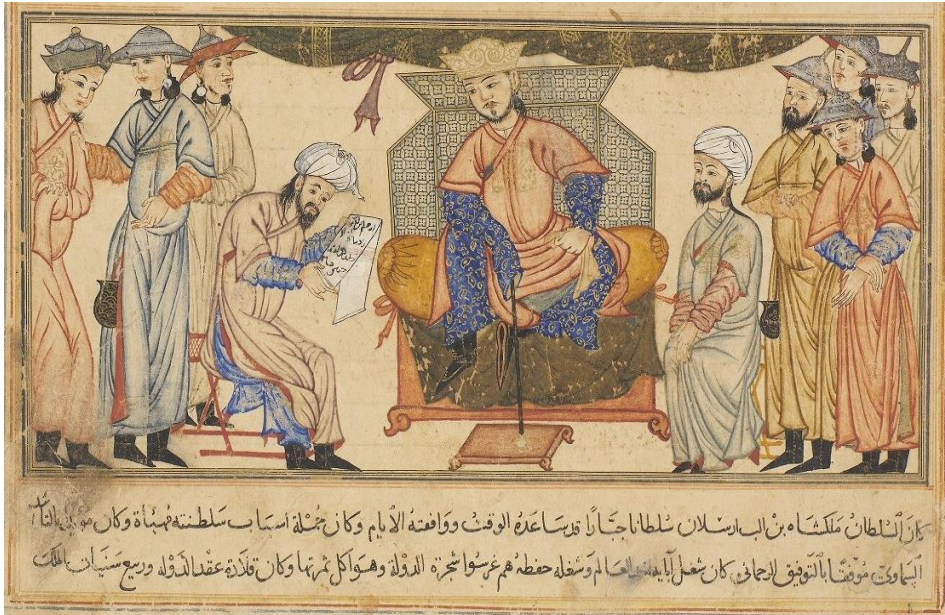 كان السلطان ملكشاه بن الب ارسلان سلطانا جبارا قد ساعده الوقت ووافقته الايام وكان جملة اسباب سلطنته مهياة وكان
السماوي موفقا بالتوفيق الرحماني كان شغل آبايه العالم وشغله حفظه هم غرسوا شجرة الدولة وهو اكل ثمرتها وكان قلادة عقد الدولة وربيع الملك